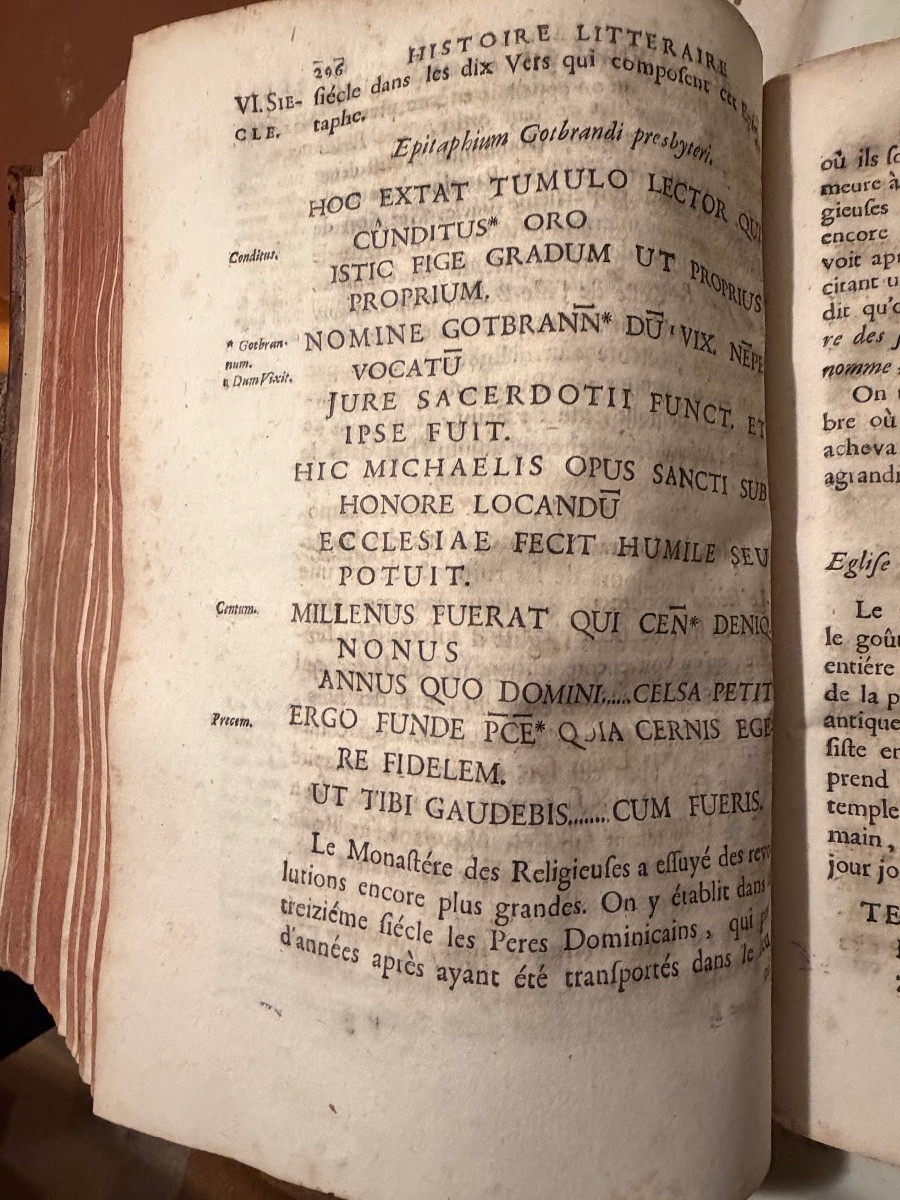 296 HISTOIRE LITTERAIRE
VI. SIE- siécle dans les dix Vers qui composent cet Epi-
CLE. taphe.
Epitaphium Gotbrandi presbyteri.
HOC EXTAT TUMULO LECTOR QUI
CÛNDITUS* ORO
Conditus.
ISTIC FIGE GRADUM UT PROPRIUS
PROPRIUM.
NOMINE GOTBRANN̅* DŪ VIX. NĒPE
* Gotbran-
num.
VOCATŪ
Dum Vixit.
JURE SACERDOTII FUNCT. ET
IPSE FUIT.
HIC MICHAELIS OPUS SANCTI SUB
HONORE LOCANDŪ
ECCLESIAE FECIT HUMILE SEU
POTUIT.
Centum. MILLENUS FUERAT QUI CEN̅* DENIQ.
NONUS
ANNUS QUO DOMINI.....CELSA PETIT
Precem. ERGO FUNDE P̅C̅E̅* QUIA CERNIS EGE
RE FIDELEM.
UT TIBI GAUDEBIS........CUM FUERIS.
Le Monastére des Religieuses a essuyé des revo
lutions encore plus grandes. On y établit dans
treiziéme siécle les Peres Dominicains, qui
d'années après ayant été transportés dans le
où ils
meure à
gieuses
encore
voit
citant
dit
re des
nomme
On
bre où
acheva
agrandi
Eglise
Le
le
entiére
de la
antique
siste
prend
temple
main,
jour
TE